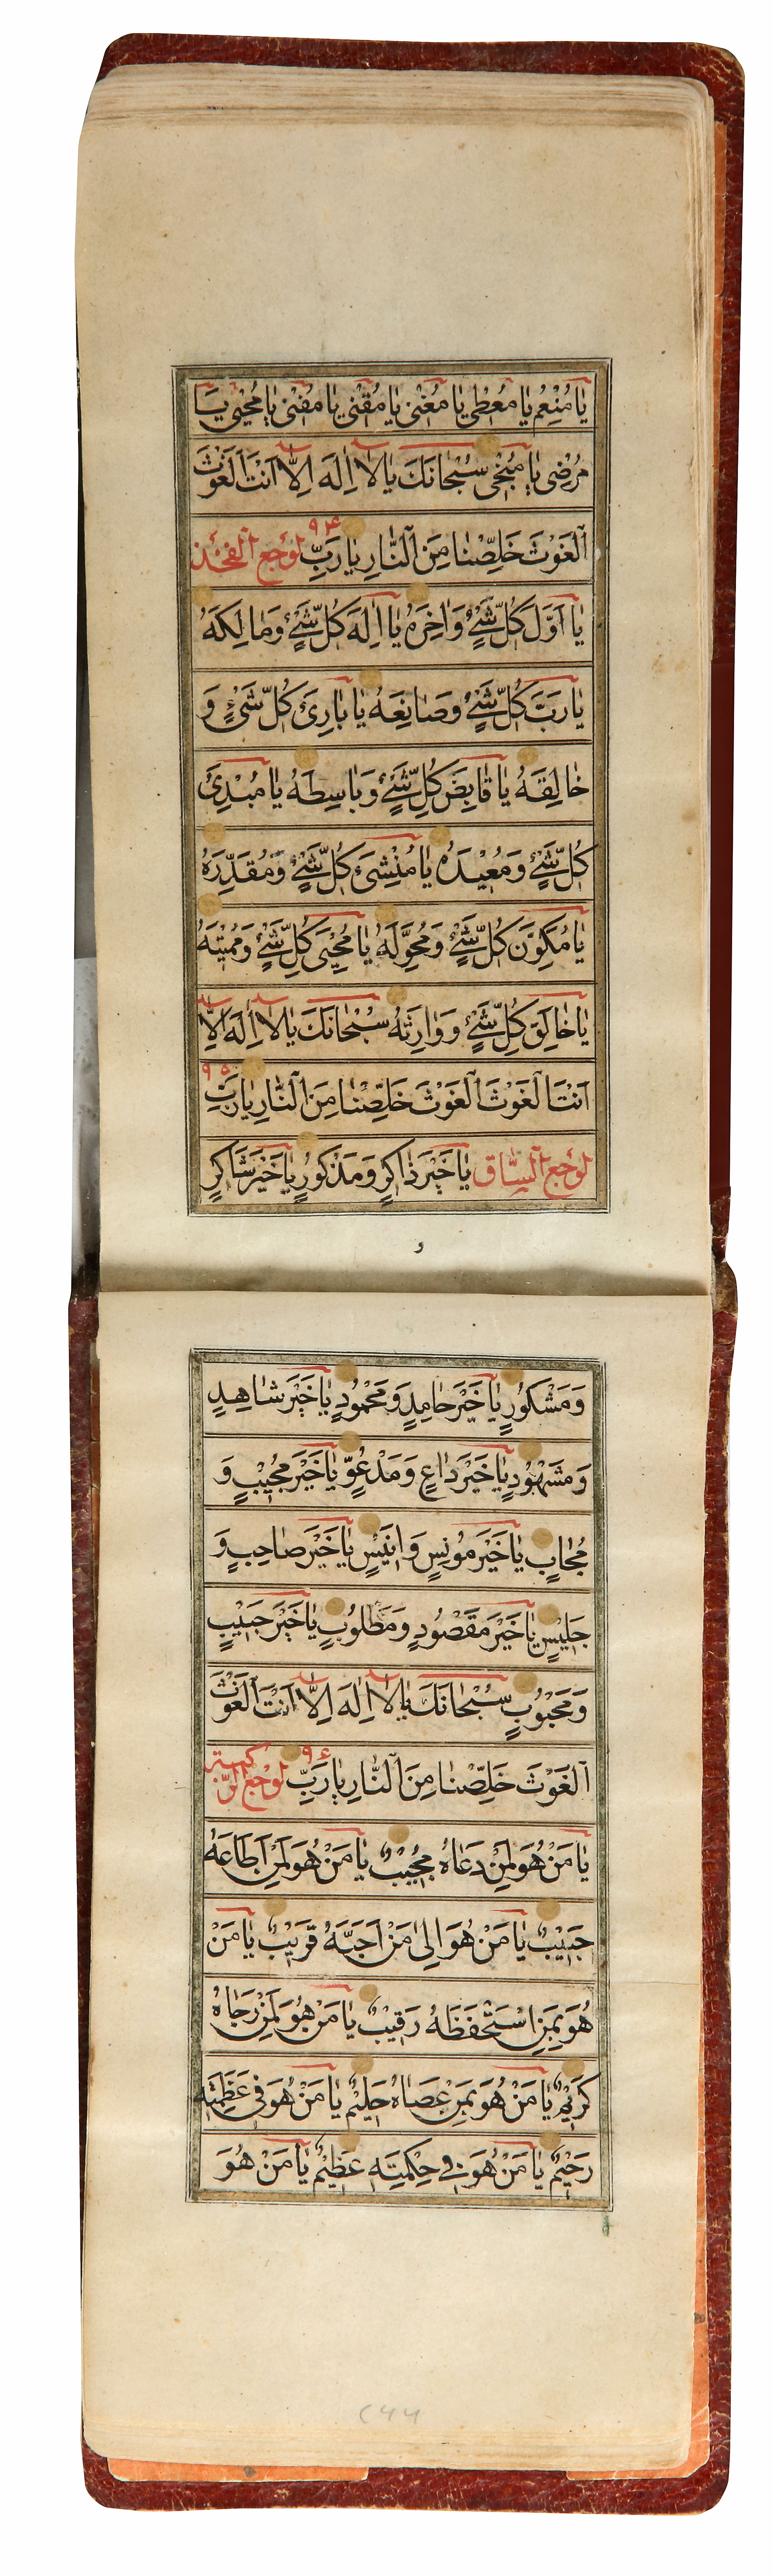 يَا مُنْعِمُ يَا مُعْطِي يَا مُغْنِي يَا مُقْنِي يَا مُفْنِي يَا مُحْيِي يَا
مُرْضِي يَا مُنْجِي سُبْحَانَكَ يَا لَا اِلٰهَ اِلَّا اَنْتَ الْغَوْثَ
الْغَوْثَ خَلِّصْنَا مِنَ النَّارِ يَا رَبِّ ۹۴ لوجع الفخذ
يَا اَوَّلَ كُلِّ شَيْءٍ وَاٰخِرَهُ يَا اِلٰهَ كُلِّ شَيْءٍ وَمَالِكَهُ
يَا رَبَّ كُلِّ شَيْءٍ وَصَانِعَهُ يَا بَارِئَ كُلِّ شَيْءٍ وَ
خَالِقَهُ يَا قَابِضَ كُلِّ شَيْءٍ وَبَاسِطَهُ يَا مُبْدِئَ
كُلِّ شَيْءٍ وَمُعِيْدَهُ يَا مُنْشِئَ كُلِّ شَيْءٍ وَمُقَدِّرَهُ
يَا مُكَوِّنَ كُلِّ شَيْءٍ وَمُحَوِّلَهُ يَا مُحْيِيَ كُلِّ شَيْءٍ وَمُمِيْتَهُ
يَا خَالِقَ كُلِّ شَيْءٍ وَوَارِثَهُ سُبْحَانَكَ يَا لَا اِلٰهَ اِلَّا
اَنْتَ الْغَوْثَ الْغَوْثَ خَلِّصْنَا مِنَ النَّارِ يَا رَبِّ ۹۵
لوجع الساق يَا خَيْرَ ذَاكِرٍ وَمَذْكُورٍ يَا خَيْرَ شَاكِرٍ
و
وَمَشْكُورٍ يَا خَيْرَ حَامِدٍ وَمَحْمُودٍ يَا خَيْرَ شَاهِدٍ
وَمَشْهُوْدٍ يَا خَيْرَ دَاعٍ وَمَدْعُوٍّ يَا خَيْرَ مُجِيْبٍ وَ
مُجَابٍ يَا خَيْرَ مُونِسٍ وَاَنِيْسٍ يَا خَيْرَ صَاحِبٍ وَ
جَلِيْسٍ يَا خَيْرَ مَقْصُودٍ وَمَطْلُوبٍ يَا خَيْرَ حَبِيْبٍ
وَمَحْبُوْبٍ سُبْحَانَكَ يَا لَا اِلٰهَ اِلَّا اَنْتَ الْغَوْثَ
الْغَوْثَ خَلِّصْنَا مِنَ النَّارِ يَا رَبِّ ۹۶ لوجع الركبة
يَا مَنْ هُوَ لِمَنْ دَعَاهُ مُجِيْبٌ يَا مَنْ هُوَ لِمَنْ اَطَاعَهُ
حَبِيْبٌ يَا مَنْ هُوَ اِلٰى مَنْ اَحَبَّهُ قَرِيْبٌ يَا مَنْ
هُوَ بِمَنِ اسْتَحْفَظَهُ رَقِيْبٌ يَا مَنْ هُوَ لِمَنْ رَجَاهُ
كَرِيْمٌ يَا مَنْ هُوَ بِمَنْ عَصَاهُ حَلِيْمٌ يَا مَنْ هُوَ فِي عَظَمَتِهِ
رَحِيْمٌ يَا مَنْ هُوَ فِي حِكْمَتِهِ عَظِيْمٌ يَا مَنْ هُوَ